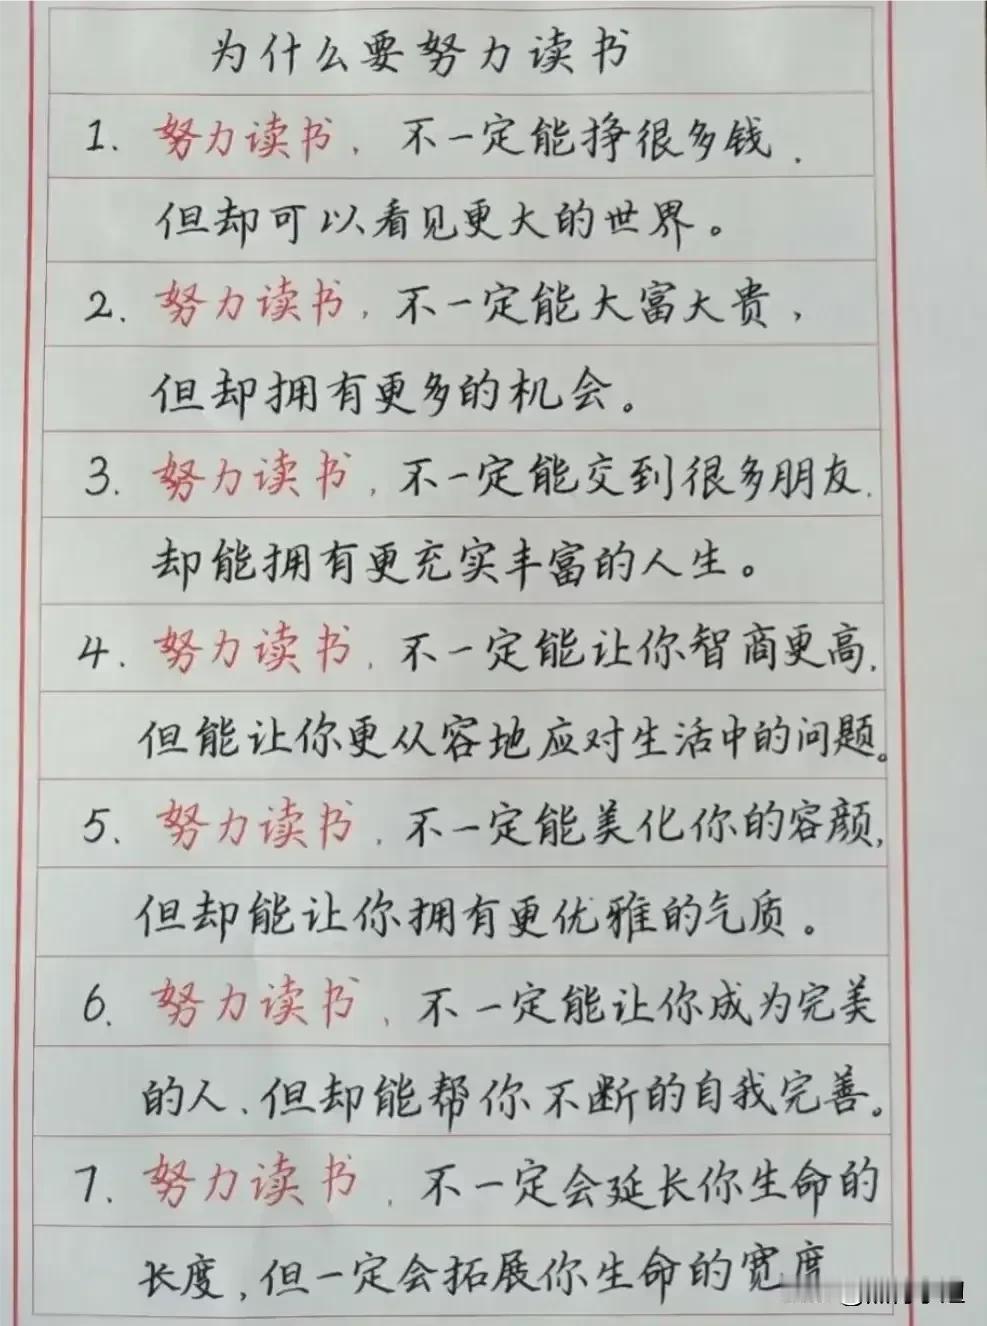 为什么要努力读书
1. 努力读书，不一定能挣很多钱．
但却可以看见更大的世界。
2. 努力读书，不一定能大富大贵，
但却拥有更多的机会。
3. 努力读书，不一定能交到很多朋友．
却能拥有更充实丰富的人生。
4. 努力读书，不一定能让你智商更高．
但能让你更从容地应对生活中的问题。
5. 努力读书，不一定能美化你的容颜，
但却能让你拥有更优雅的气质。
6. 努力读书，不一定能让你成为完美
的人、但却能帮你不断的自我完善。
7. 努力读书，不一定会延长你生命的
长度，但一定会拓展你生命的宽度